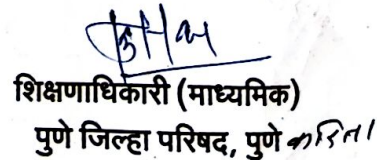 शिक्षणाधिकारी (माध्यमिक)
पुणे जिल्हा परिषद, पुणे करिता